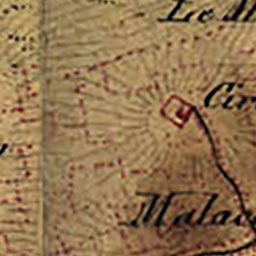 Le M
Cir
Malac